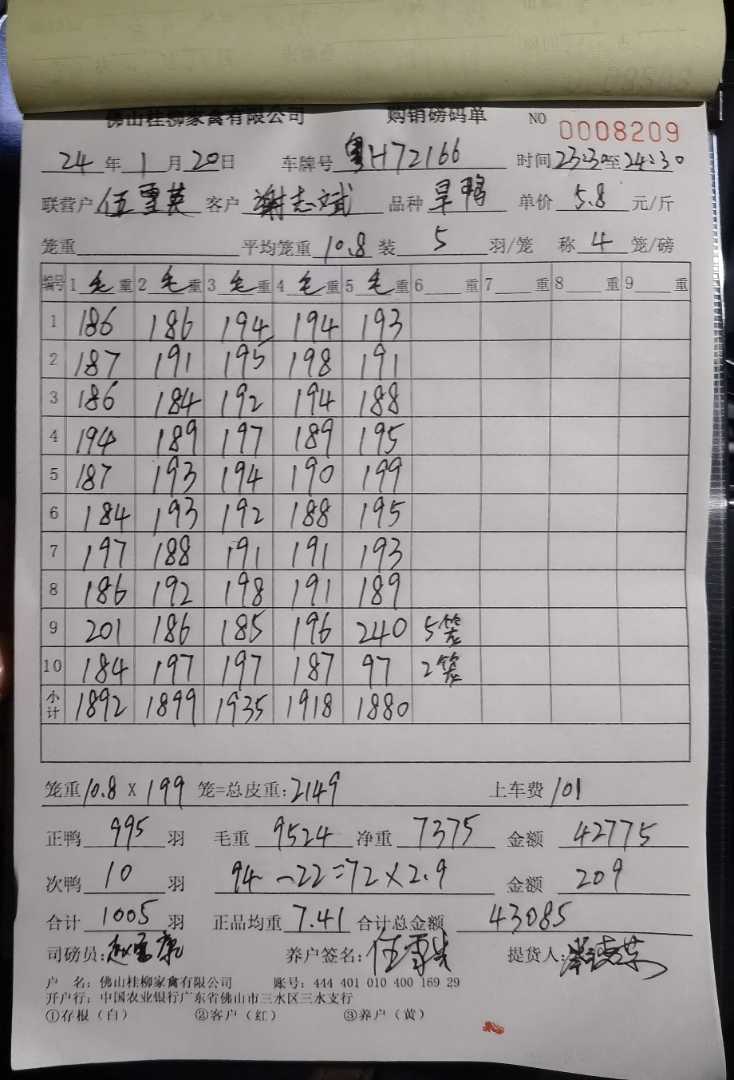 佛山桂柳家禽有限公司 购销磅码单 NO 0008209
24年1月20日 车牌号 粤H72166 时间23:30至24:30
联营户 伍雪英 客户 谢志斌 品种 旱鸭 单价 5.8 元/斤
笼重 平均笼重 10.8 装 5 羽/笼 称 4 笼/磅
编号 1 毛 重 2 毛 重 3 毛 重 4 毛 重 5 毛 重 6 重 7 重 8 重 9 重
1 186 186 194 194 193
2 187 191 195 198 191
3 186 184 192 194 188
4 194 189 197 189 195
5 187 193 194 190 199
6 184 193 192 188 195
7 197 188 191 191 193
8 186 192 198 191 189
9 201 186 185 196 240 5笼
10 184 197 197 187 97 2笼
小计 1892 1899 1935 1918 1880
笼重10.8 x 199 笼=总皮重:2149 上车费 101
正鸭 995 羽 毛重 9524 净重 7375 金额 42775
次鸭 10 羽 94-22=72×2.9 金额 209
合计 1005 羽 正品均重 7.41 合计总金额 43085
司磅员: 养户签名: 提货人:
户 名: 佛山桂柳家禽有限公司 账号: 444 401 010 400 169 29
开户行: 中国农业银行广东省佛山市三水区三水支行
①存根(白) ②客户(红) ③养户(黄)